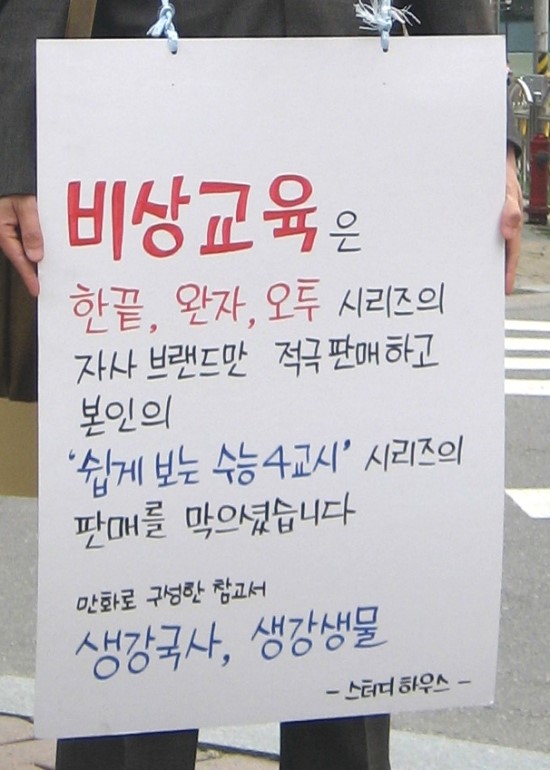 비상교육은
한끝, 완자, 오투 시리즈의
자사 브랜드만 적극 판매하고
본인의
'쉽게 보는 수능4교시' 시리즈의
판매를 막으셨습니다
만화로 구성한 참고서
생강국사, 생강생물
- 스터디 하우스 -